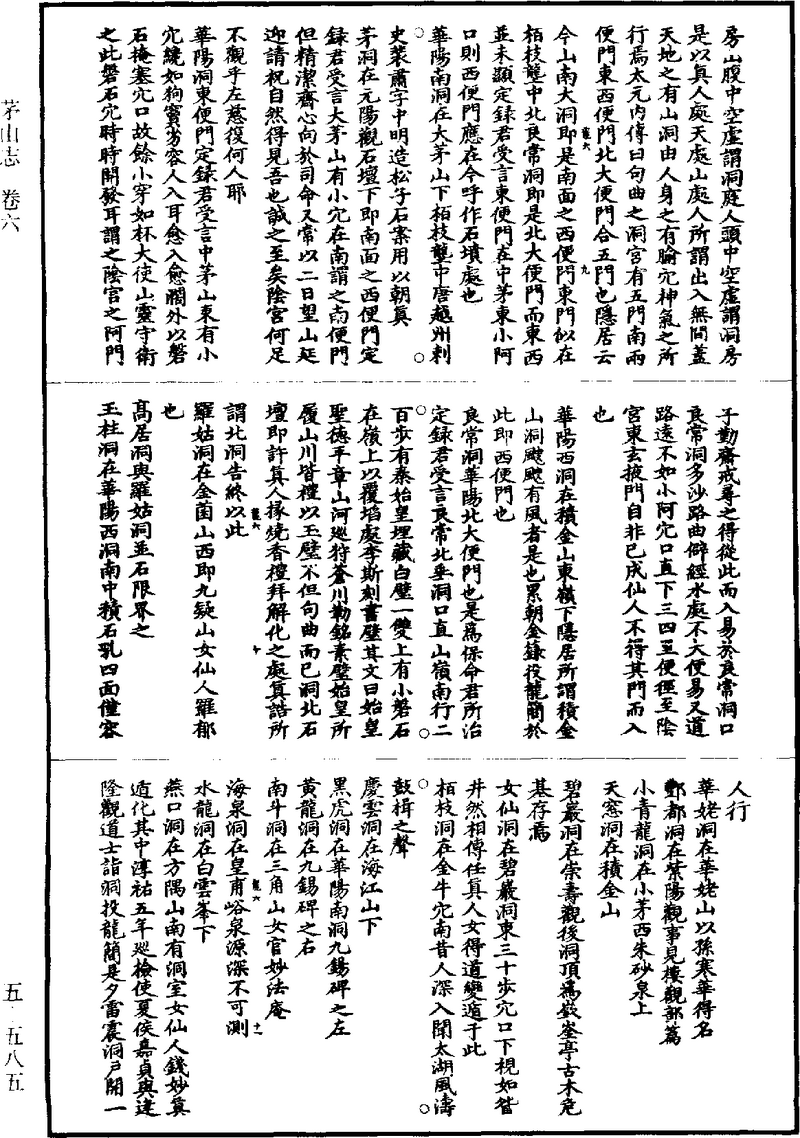 茅山志 卷六
房山腹中空虛謂洞庭人頭中空虛謂洞房
是以真人處天處山處人所謂出入無間蓋
天地之有山洞由人身之有腧穴神氣之所
行焉太元內傳曰句曲之洞宮有五門南兩
便門東西便門北大便門合五門也隱居云
今山南大洞即是南面之西便門東門似在
栢枝壟中北良常洞即是北大便門而東西
並未顯定錄君受言東便門在中茅東小阿
口則西便門應在今呼作石墳處也
華陽南洞在大茅山下栢枝壟中唐越州刺
史裴肅字中明造松子石案用以朝真
茅洞在元陽觀石壇下即南面之西便門定
錄君受言大茅山有小穴在南謂之南便門
但精潔齋心向於司命又常以二日望山延
迎請祝自然得見吾也誠之至矣陰宮何足
不觀乎左慈復何人耶
華陽洞東便門定錄君受言中茅山東有小
穴纔如狗竇劣容人入耳愈入愈闊外以磐
石掩塞穴口故餘小穿如杯大使山靈守衛
之此磐石穴時時開發耳謂之陰宮之阿門
子勤齋戒尋之得從此而入易於良常洞口
良常洞多沙路曲僻經水處不大便易又道
路遠不如小阿穴口直下三四里便徑至陰
宮東玄掖門自非已成仙人不得其門而入
也
華陽西洞在積金山東嶺下隱居所謂積金
山洞颼颼有風者是也累朝金籙投龍簡於
此即西便門也
良常洞華陽北大便門也是爲保命君所治
定錄君受言良常北垂洞口直山嶺南行二
百步有秦始皇埋藏白璧一雙上有小磐石
在嶺上以覆埳處李斯刻書璧其文曰始皇
聖德平章山河巡狩蒼川勒銘素璧始皇所
履山川皆禮以玉璧不但句曲而已洞北石
壇即許真人掾燒香禮拜解化之處真誥所
謂北洞告終以此
羅姑洞在金菌山西即九疑山女仙人羅郁
也
高居洞與羅姑洞並石限界之
玉柱洞在華陽西洞南中積石乳四面僅容
人行
華姥洞在華姥山以孫寒華得名
酆都洞在紫陽觀事見樓觀部篇
小青龍洞在小茅西朱砂泉上
天窓洞在積金山
碧巖洞在崇壽觀後洞頂爲嶔崟亭古木危
基存焉
女仙洞在碧巖洞東三十步穴口下視如眢
井然相傳任真人女得道變遁于此
栢枝洞在金牛穴南昔人深入聞太湖風濤
鼓楫之聲
慶雲洞在海江山下
黑虎洞在華陽南洞九錫碑之左
黃龍洞在九錫碑之右
南斗洞在三角山女官妙法庵
海泉洞在皇甫峪泉源深不可測
水龍洞在白雲峯下
燕口洞在方隅山南有洞室女仙人錢妙真
遁化其中淳祐五年巡檢使夏侯嘉貞與達
隆觀道士詣洞投龍簡是夕雷震洞戶開一
五 五八五